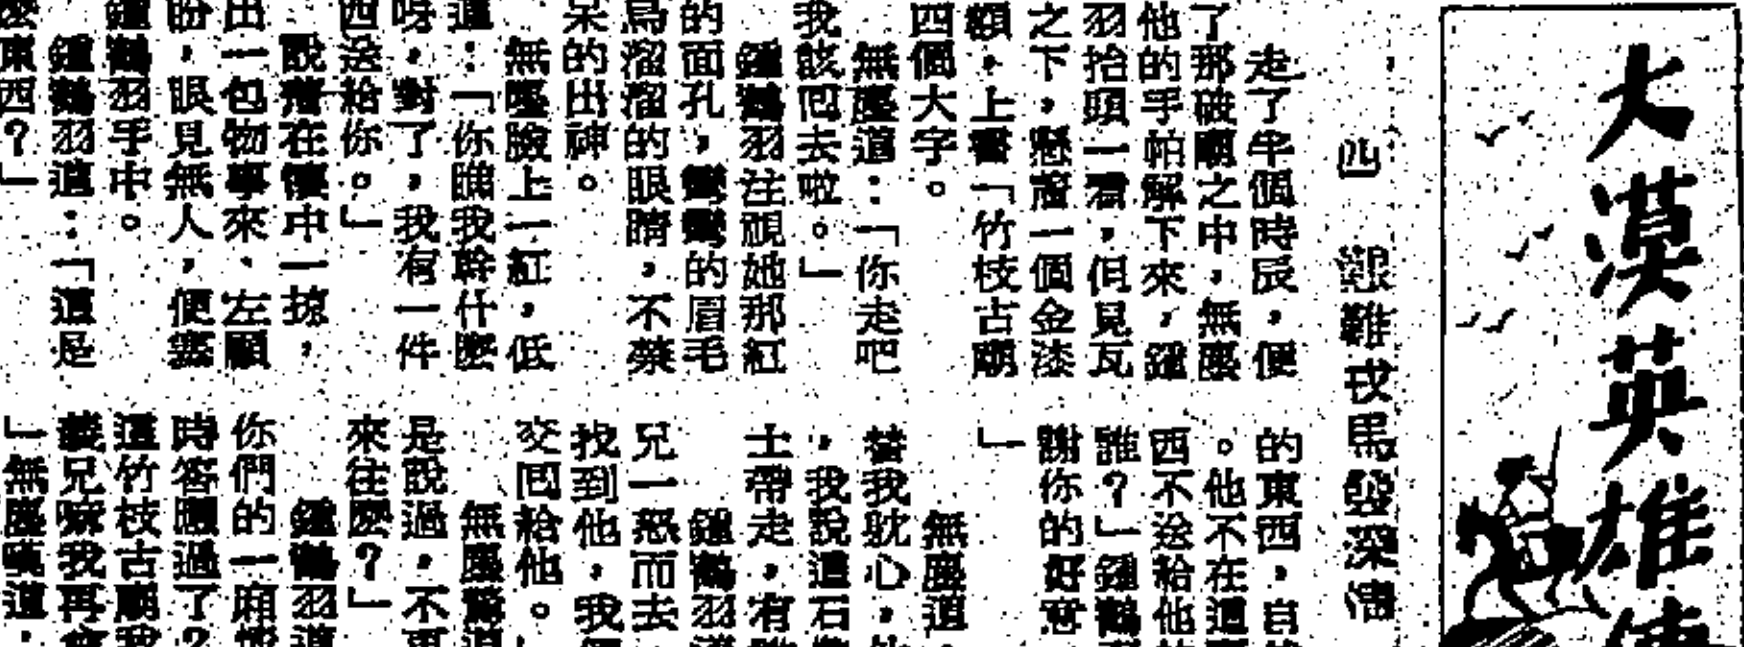 大漠英雄傳
四　艱難戎馬發深情
走了半個時辰，便
了那破廟之中，無塵
他的手帕解下來，鍾
羽抬頭一看，但見瓦
之下，懸着一個金漆
額，上書「竹枝古廟
四個大字。
無塵道：「你走吧
我該回去啦。」
鍾鶴羽注視她那紅
的面孔，彎彎的眉毛
烏溜溜的眼睛，不禁
呆的出神。
無塵臉上一紅，低
道：「你瞧我幹什麼
呀，對了，我有一件
西送給你。」
說着在懷中一掠，
出一包物事來，左顧
盼，眼見無人，便塞
鍾鶴羽手中。
鍾鶴羽道：「這是
麼東西？」
的東西，自
。他不在這
西不送給他
誰？」鍾鶴
謝你的好意
」
無塵道
替我躭心，
，我說這石
士帶走，有
鍾鶴羽道
兄一怒而去
找到他，我
交回給他。
無塵驚道
是說過，不再
來往麼？」
鍾鶴羽道
你們的一廂
時答應過了？
這竹枝古廟我
義兄嘛我再會
」無塵嘆道：